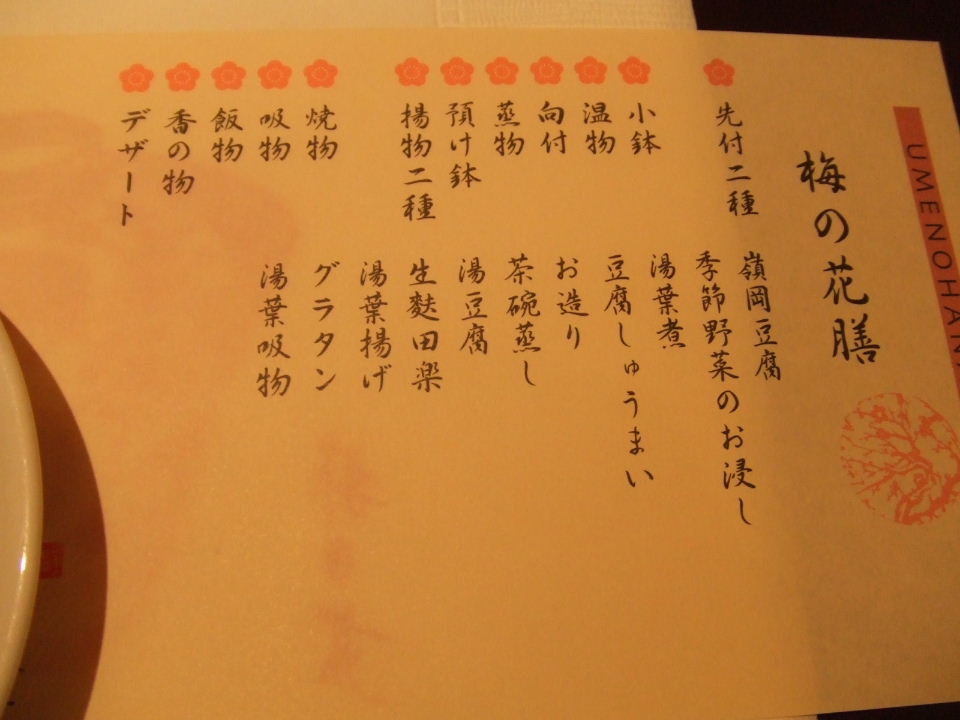 UMENOHAN
梅の花膳
先付二種
嶺岡豆腐
季節野菜のお浸し
小鉢
湯葉煮
温物
豆腐しゅうまい
向付
お造り
蒸物
茶碗蒸し
預け鉢
湯豆腐
揚物二種
生麩田楽
湯葉揚げ
焼物
グラタン
吸物
湯葉吸物
飯物
香の物
デザート